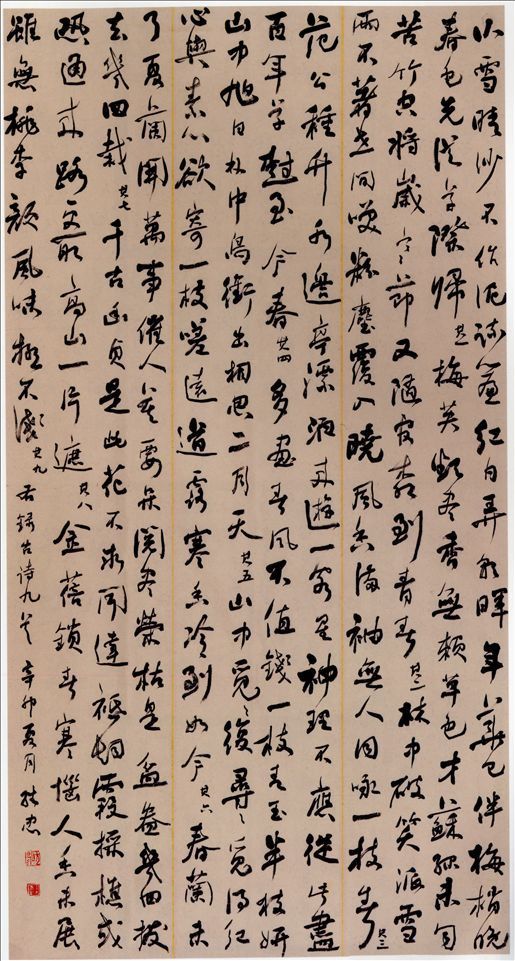 小雪晴沙不作泥疏簾紅日弄朝暉年華已伴梅梢晚
春色先從草際歸其一梅英彫尽香無賴草色才蘇綠未匀
苦竹空將歲寒節又隨官柳到青春其二林中破笑派雪
雨不著世間塵覆入曉風香滿袖無人同咏一枝春其三
范公種竹水邊亭漂泊來遊一客星神理不應從此盡
百年草樹至今春其四多畫春風不值錢一枝青玉半枝妍
山中旭日林中鳥銜出相思二月天其五山中覓々復尋々覓得紅
心與素心欲寄一枝嗟遠道露寒香冷到如今其六春蘭未
了夏蘭開萬事催人莫要呆閱盡榮枯是盆盎幾回拔
去幾回栽其七千古幽貞是此花不求聞達祗烟霞採樵或
恐通來路更取高山一片遮其八金蓓鎖春寒惱人香未展
雖無桃李顏風味極不淺其九右録古诗九首辛卯夏月忠